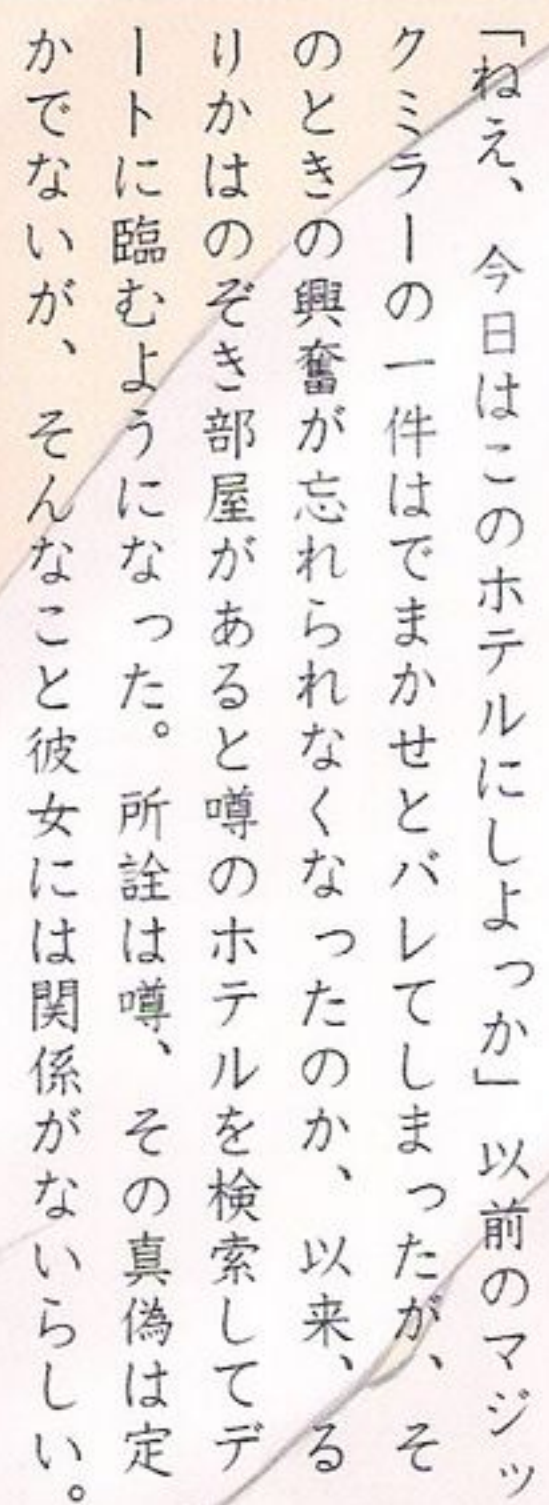 「ねえ、今日はこのホテルにしよっか」以前のマジッ
クミラーの一件はでまかせとバレてしまったが、そ
のときの興奮が忘れられなくなったのか、以来、る
りかはのぞき部屋があると噂のホテルを検索してデ
ートに臨むようになった。所詮は噂、その真偽は定
かでないが、そんなこと彼女には関係がないらしい。